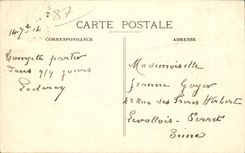 87
14 7bre 14
CARTE POSTALE
CORRESPONDANCE
ADRESSE
Compte partir
dans 7/9 jours
Mademoiselle
Jeanne Goyer
43 Rue des Frères Herbert
Levallois-Perret
Seine